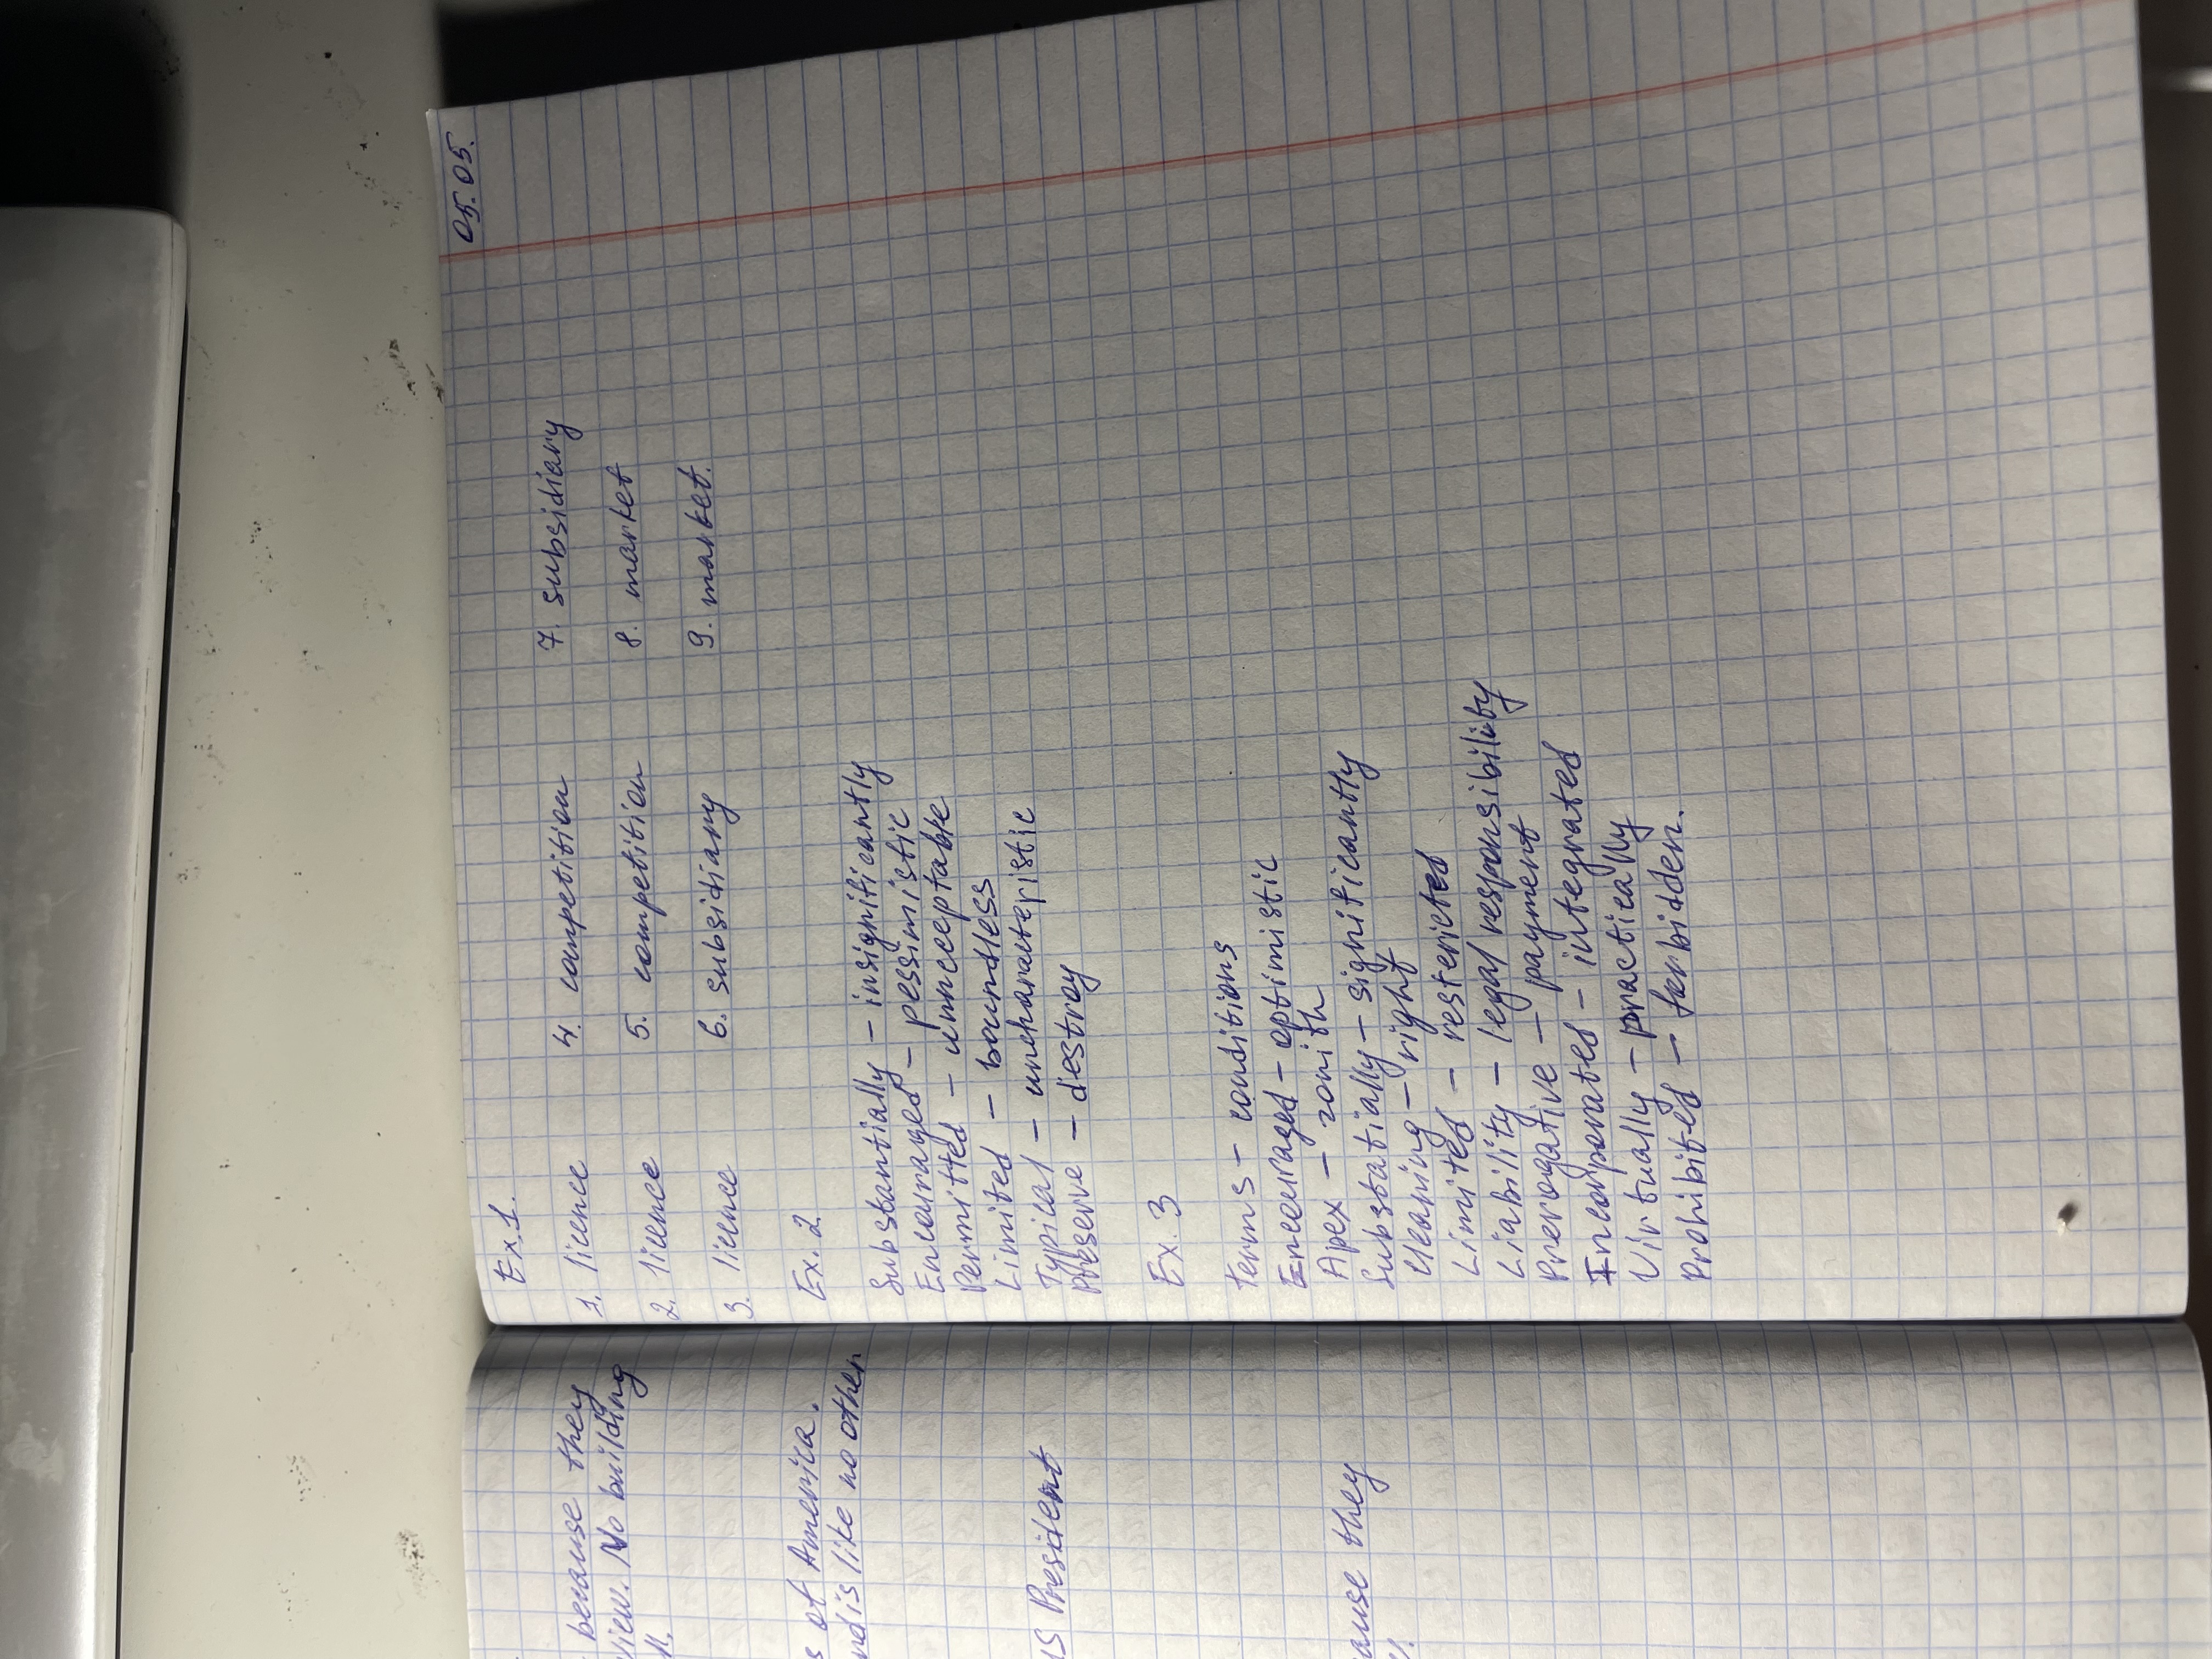 because they
view. No building
of America.
nd is like no other
us President
ause they
05.05.
Ex.1.
1. licence 4. competition 7. subsidiary
2. licence 5. competition 8. market
3. licence 6. subsidiary 9. market.
Ex. 2
Substantially – insignificantly
Encouraged – pessimistic
Permitted – unnceptable
Limited – boundless
Typical – uncharacteristic
Preserve – destroy
Ex. 3
Terms – conditions
Enceuraged – optimistic
Apex – zonith
Substatially – significantly
Cleaning – right
Limited – restericted
Liability – legal responsibility
Prerogative – payment
Incorporated – integrated
Virtually – practically
Prohibited – forbidden.